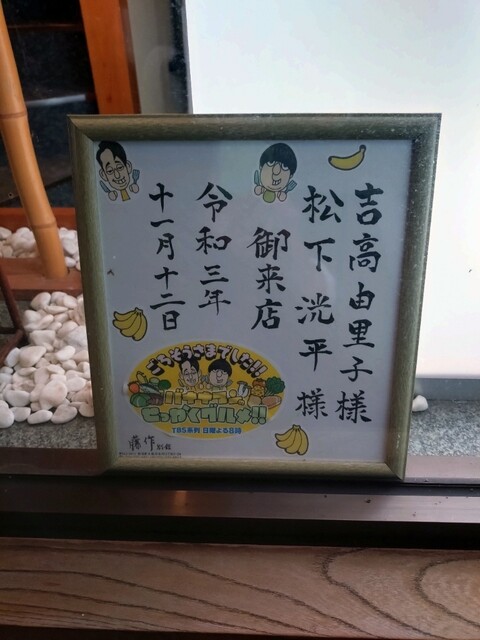 吉高由里子様
松下洸平様
御来店
令和三年
十一月十二日
ごちそうさまでした!!!
バナナマンの
せっかくグルメ!!
TBS系列 日曜よる8時